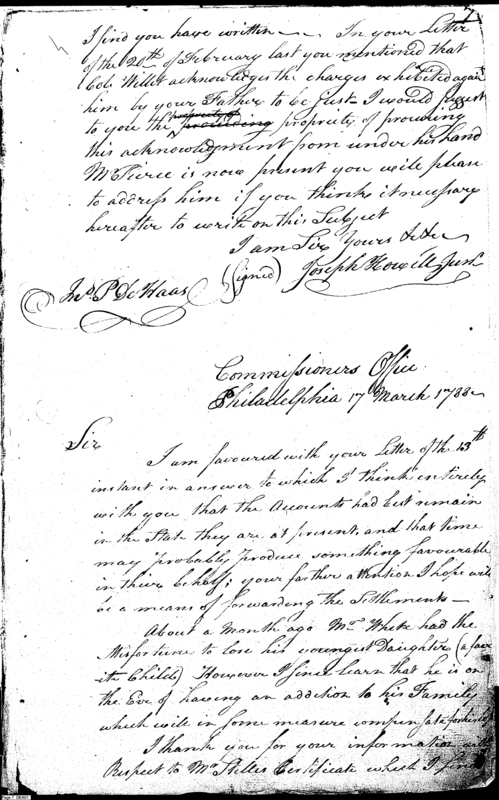 7
I find you have written —— In your Letter
of the 20th of February last you mentioned that
Col. Willet acknowledges the charges exhibited again
him by your Father to be just — I would suggest
to you the propriety of procuring
this acknowledgment from under his hand
Mr Pierce is now present you will please
to address him if you think it necessary
hereafter to write on this Subject
I am Sir Yours &c &c
(signed) Joseph Howell Junr
Jno P De Haas
Commissioners Office
Philadelphia 17 March 1788
Sir
I am favoured with your Letter of the 13th
instant in answer to which I think entirely
with you that the Accounts had best remain
in the State they are at present, and that time
may probably produce something favourable
in their behalf; your farther attention I hope will
be a means of forwarding the Settlements —
About a Month ago Mr White had the
Misfortune to lose his youngest Daughter (a fav
ite Child) However I since learn that he is on
the Eve of having an addition to his Family
which will in some measure compensate for his lo
I thank you for your information with
Respect to Mr Certificate which I